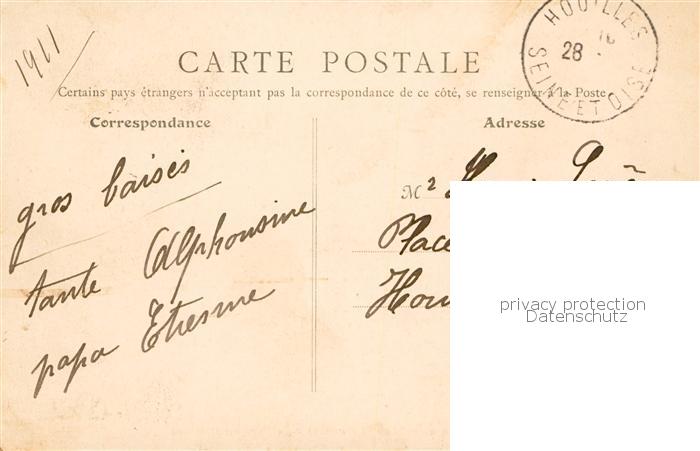 1911
HOUILLES
28
SEINE ET OISE
CARTE POSTALE
Certains pays étrangers n'acceptant pas la correspondance de ce côté, se renseigner à la Poste
Correspondance
Adresse
gros baisés
tante Alphonsine
papa Etienne
M
Place
Hou
privacy protection
Datenschutz